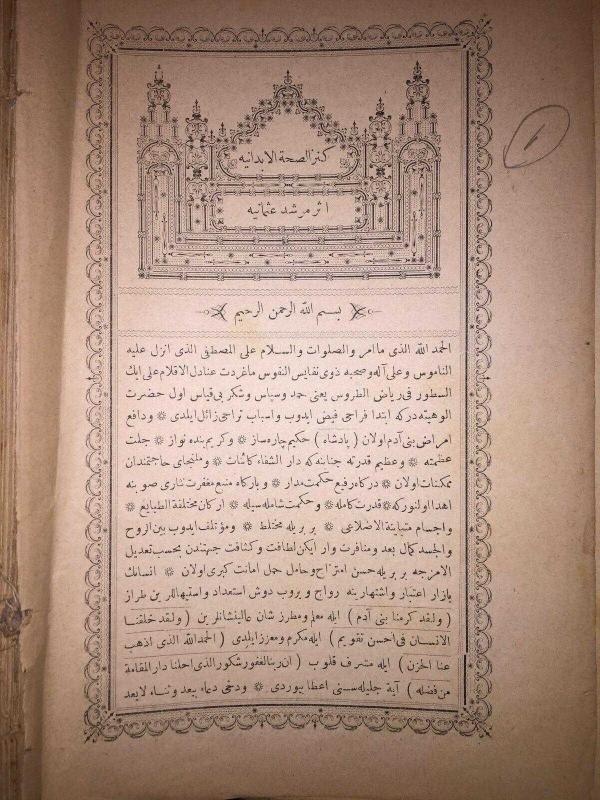 كنز الصحة الابدانيه
اثر مرشد عثمانيه
بسم الله الرحمن الرحيم
الحمد الله الذى ما امر والصلوات والسلام على المصطفى الذى انزل عليه
الناموس وعلى آله وصحبه ذوى نفايس النفوس ماغردت عنادل الاقلام على ايك
السطور فى رياض الطروس يعنى حمد وسپاس وشكر بى قياس اول حضرت
الوهيته دركه ابتدا فراحى فيض ايدوب واسباب تراحى زائل ايلدى ❊ ودافع
امراض بنى آدم اولان ( پادشاه ) حكيم چاره ساز ❊ وكريم بنده نواز ❊ جلت
عظمته ❊ وعظيم قدرته جنابنه كه دار الشفاء كائنات ❊ وملتجاى حاجتمندان
ممكنات اولان ❊ دركاه رفيع حكمت مدار ❊ وباركاه منيع مغفرت نثارى صوبنه
اهدا اولنوركه ❊ قدرت كامله ❊ وحكمت شامله سيله ❊ اركان مختلفة الطبايع ❊
واجسام متباينة الاضلاعى ❊ بر بريله مختلط ❊ ومؤتلف ايدوب بين الروح
والجسد كمال بعد ومنافرت وار ايكن لطافت وكثافت جهتندن بحسب تعديل
الامزجه بر بريله حسن امتزاح وحامل حمل امانت كبرى اولان ❊ انسانك
بازار اعتبار واشتهارينه رواج ويروب دوش استعداد واستيهاللرين طراز
( ولقد كرمنا بنى آدم ) ايله معلم ومطرز شان عاليشانلرين ( ولقد خلقنا
الانسان فى احسن تقويم ) ايله مكرم ومعزز ايلدى ( الحمدالله الذى اذهب
عنا الحزن ) ايله مشرف قلوب ( ان ربنا لغفور شكور الذى احلنا دار المقامة
من فضله ) آية جليله سنى اعطا بيوردى ❊ ودخى دعاء بيعد وثناء لايعد